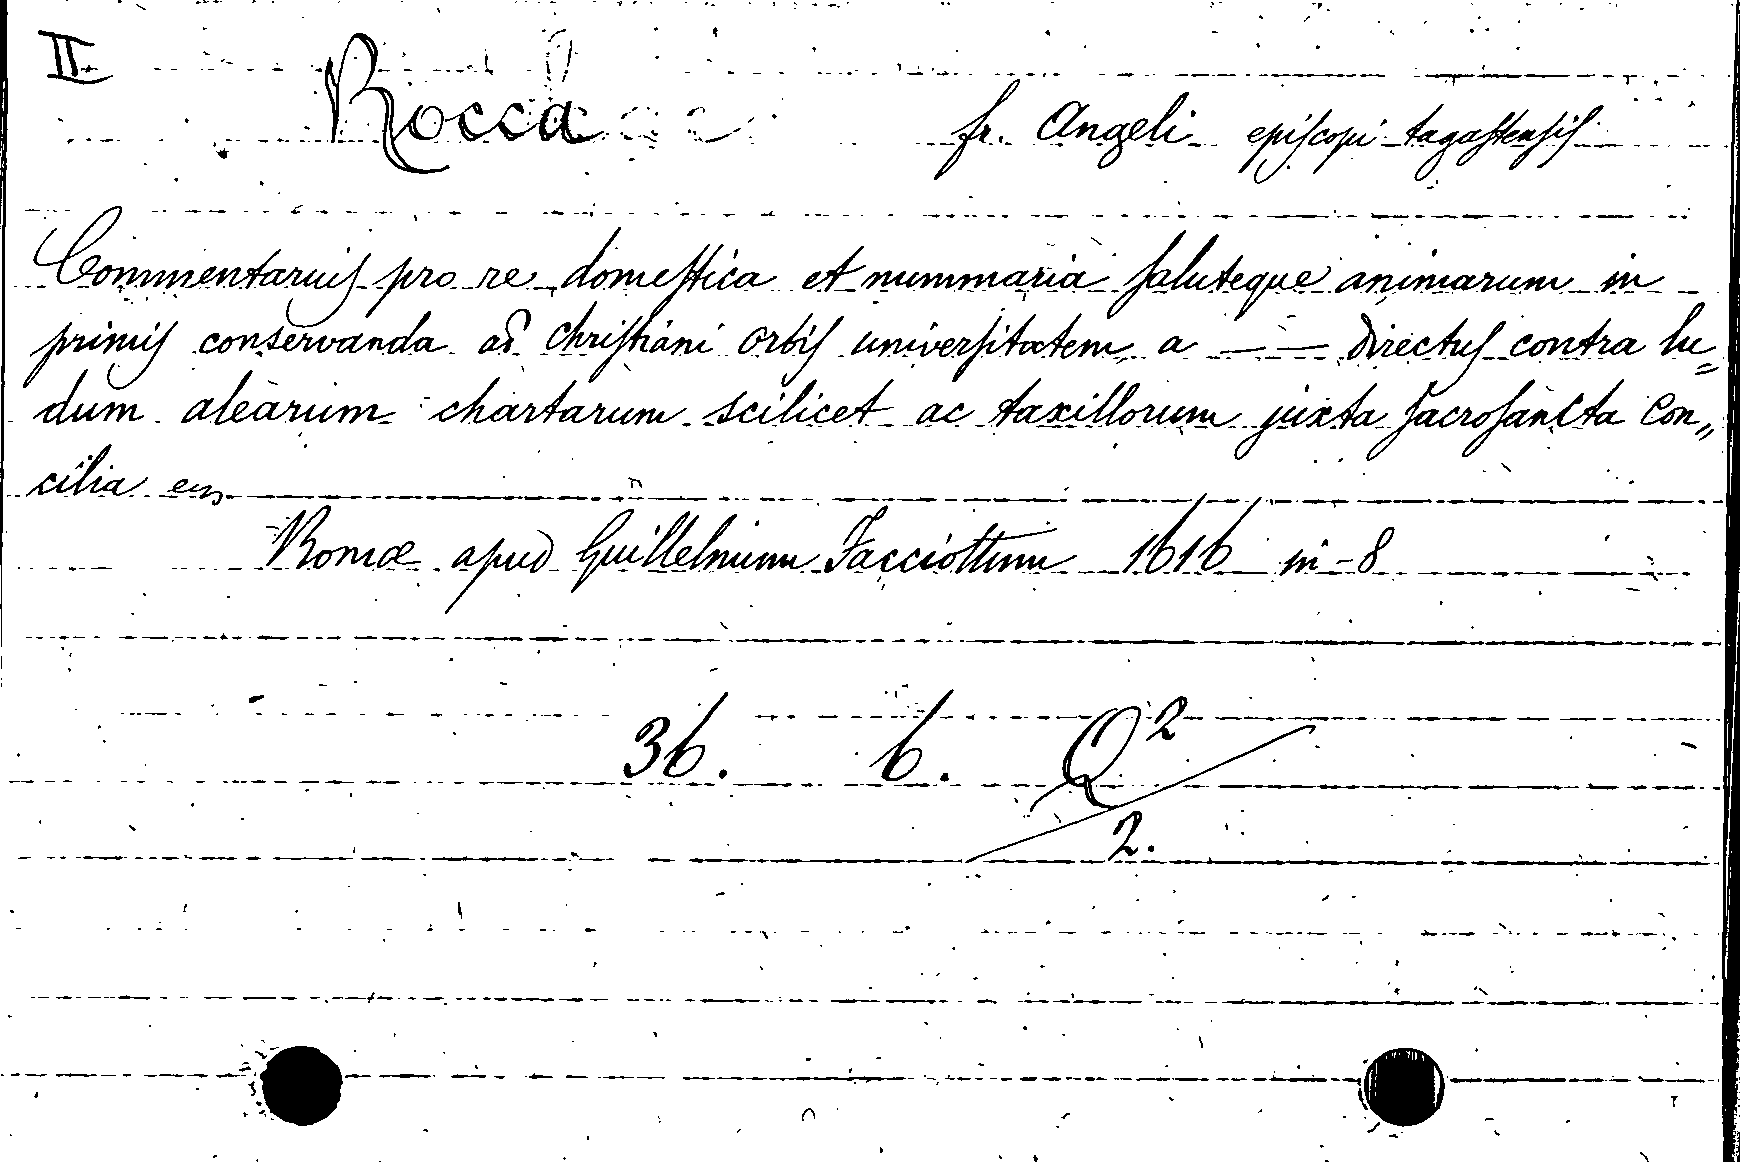 II.
Rocca fr. Angeli episcopi tagastensis
Commentarius pro re domestica et nummaria saluteque animarum in
primis conservanda ad christiani orbis universitatem a — — directus contra lu=
dum alearum chartarum scilicet ac taxillorum juxta sacrosancta Con„
cilia
Romæ apud Guillelmum Facciottum 1616 in-8
36. 6. Q²
2.